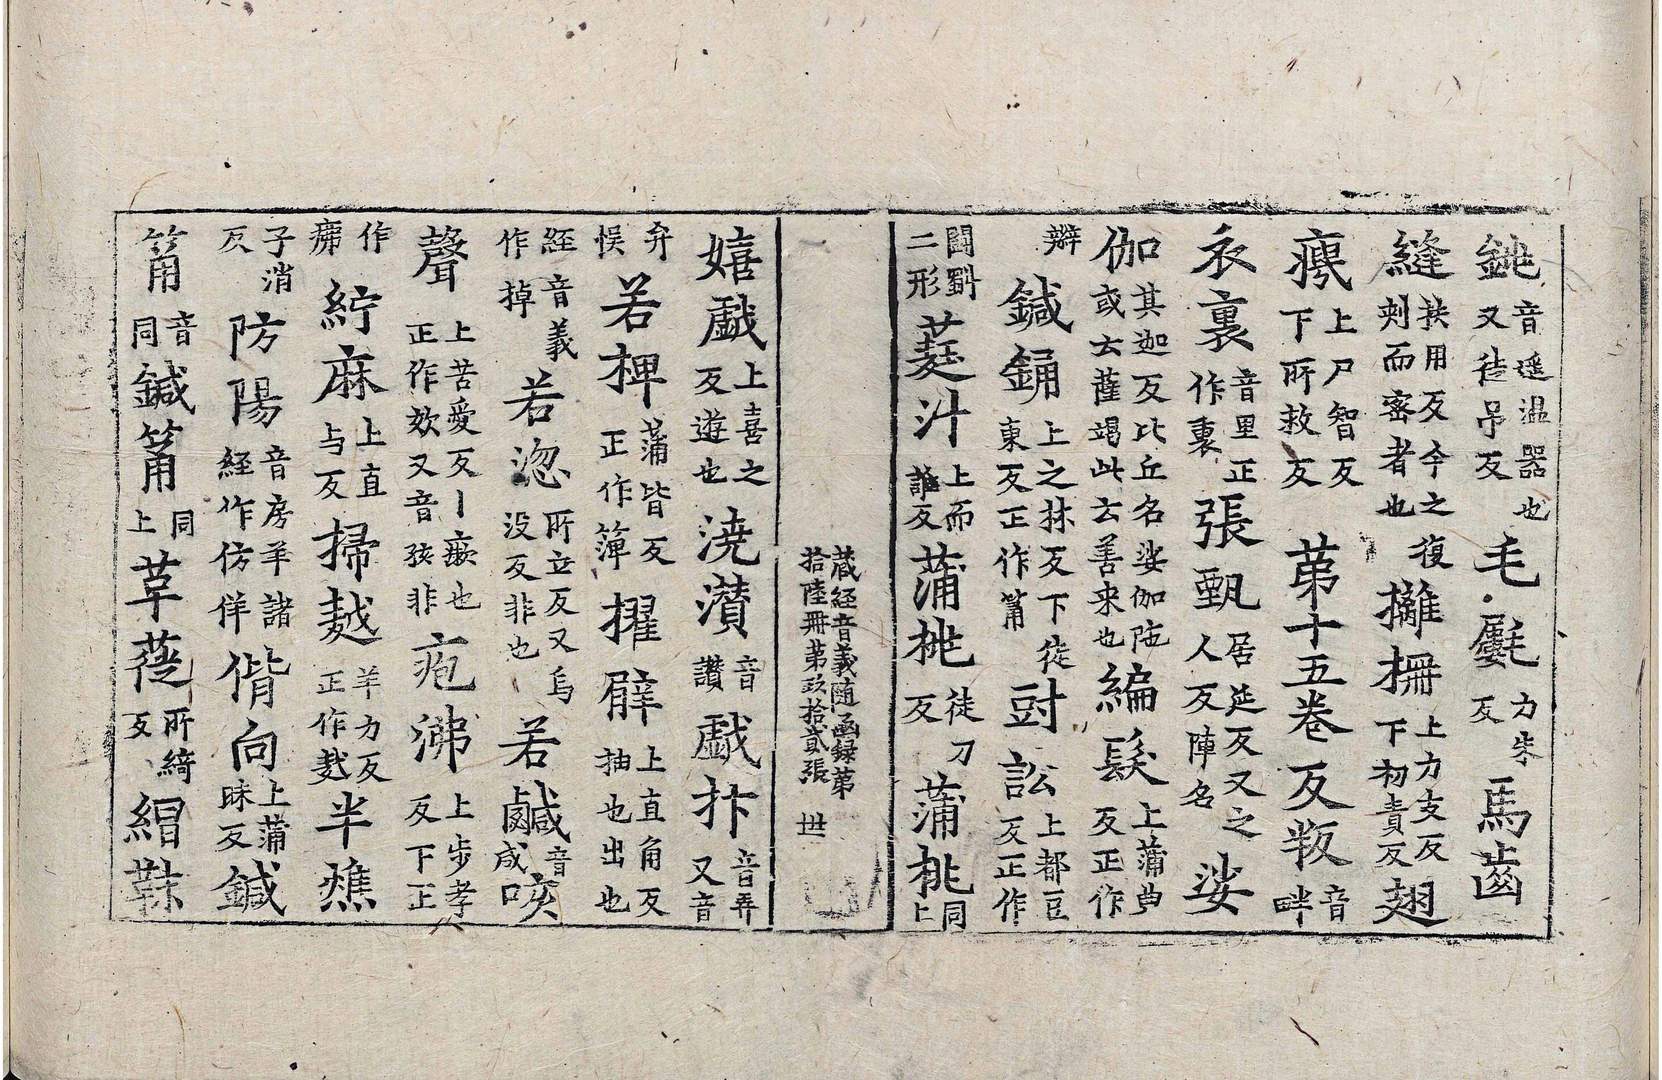 銚音遥温器也又徒吊反毛㲣力朱反馬齒
縫扶用反令之復刾而密者也攡柵上力支反下初責反翅
瘈上尸智反下所救反第十五卷反叛音畔
衣裏音里正作裏張甄居延反又之人反陣名娑
伽其迦反比丘名娑伽陁或云薩竭此云善来也編髮上蒲典反正作
辮鍼䤼上之林反下徒東反正作筩㝴訟上都豆反正作
鬪鬬二形蕤汁上而誰反蒲桃徒刀反蒲桃同上
藏經音義随函録第拾陸冊第玖拾貳張 丗
嬉戲上喜之反遊也澆灒音讚戲抃音弄又音
弃悮若捭蒲皆反正作簰擢臂上直角反抽也出也
經音義作掉若淴所立反又烏没反非也若鹹音咸唉
聲上苦愛反丨瘶也正作欬又音孩非疱沸上步孝反下正
作疿紵麻上直与反掃䞣羊力反正作䴬半燋
子消反防陽音房羊諸經作仿佯偝向上蒲昧反鍼
筩音同鍼筩同上草蓰所綺反緝靺